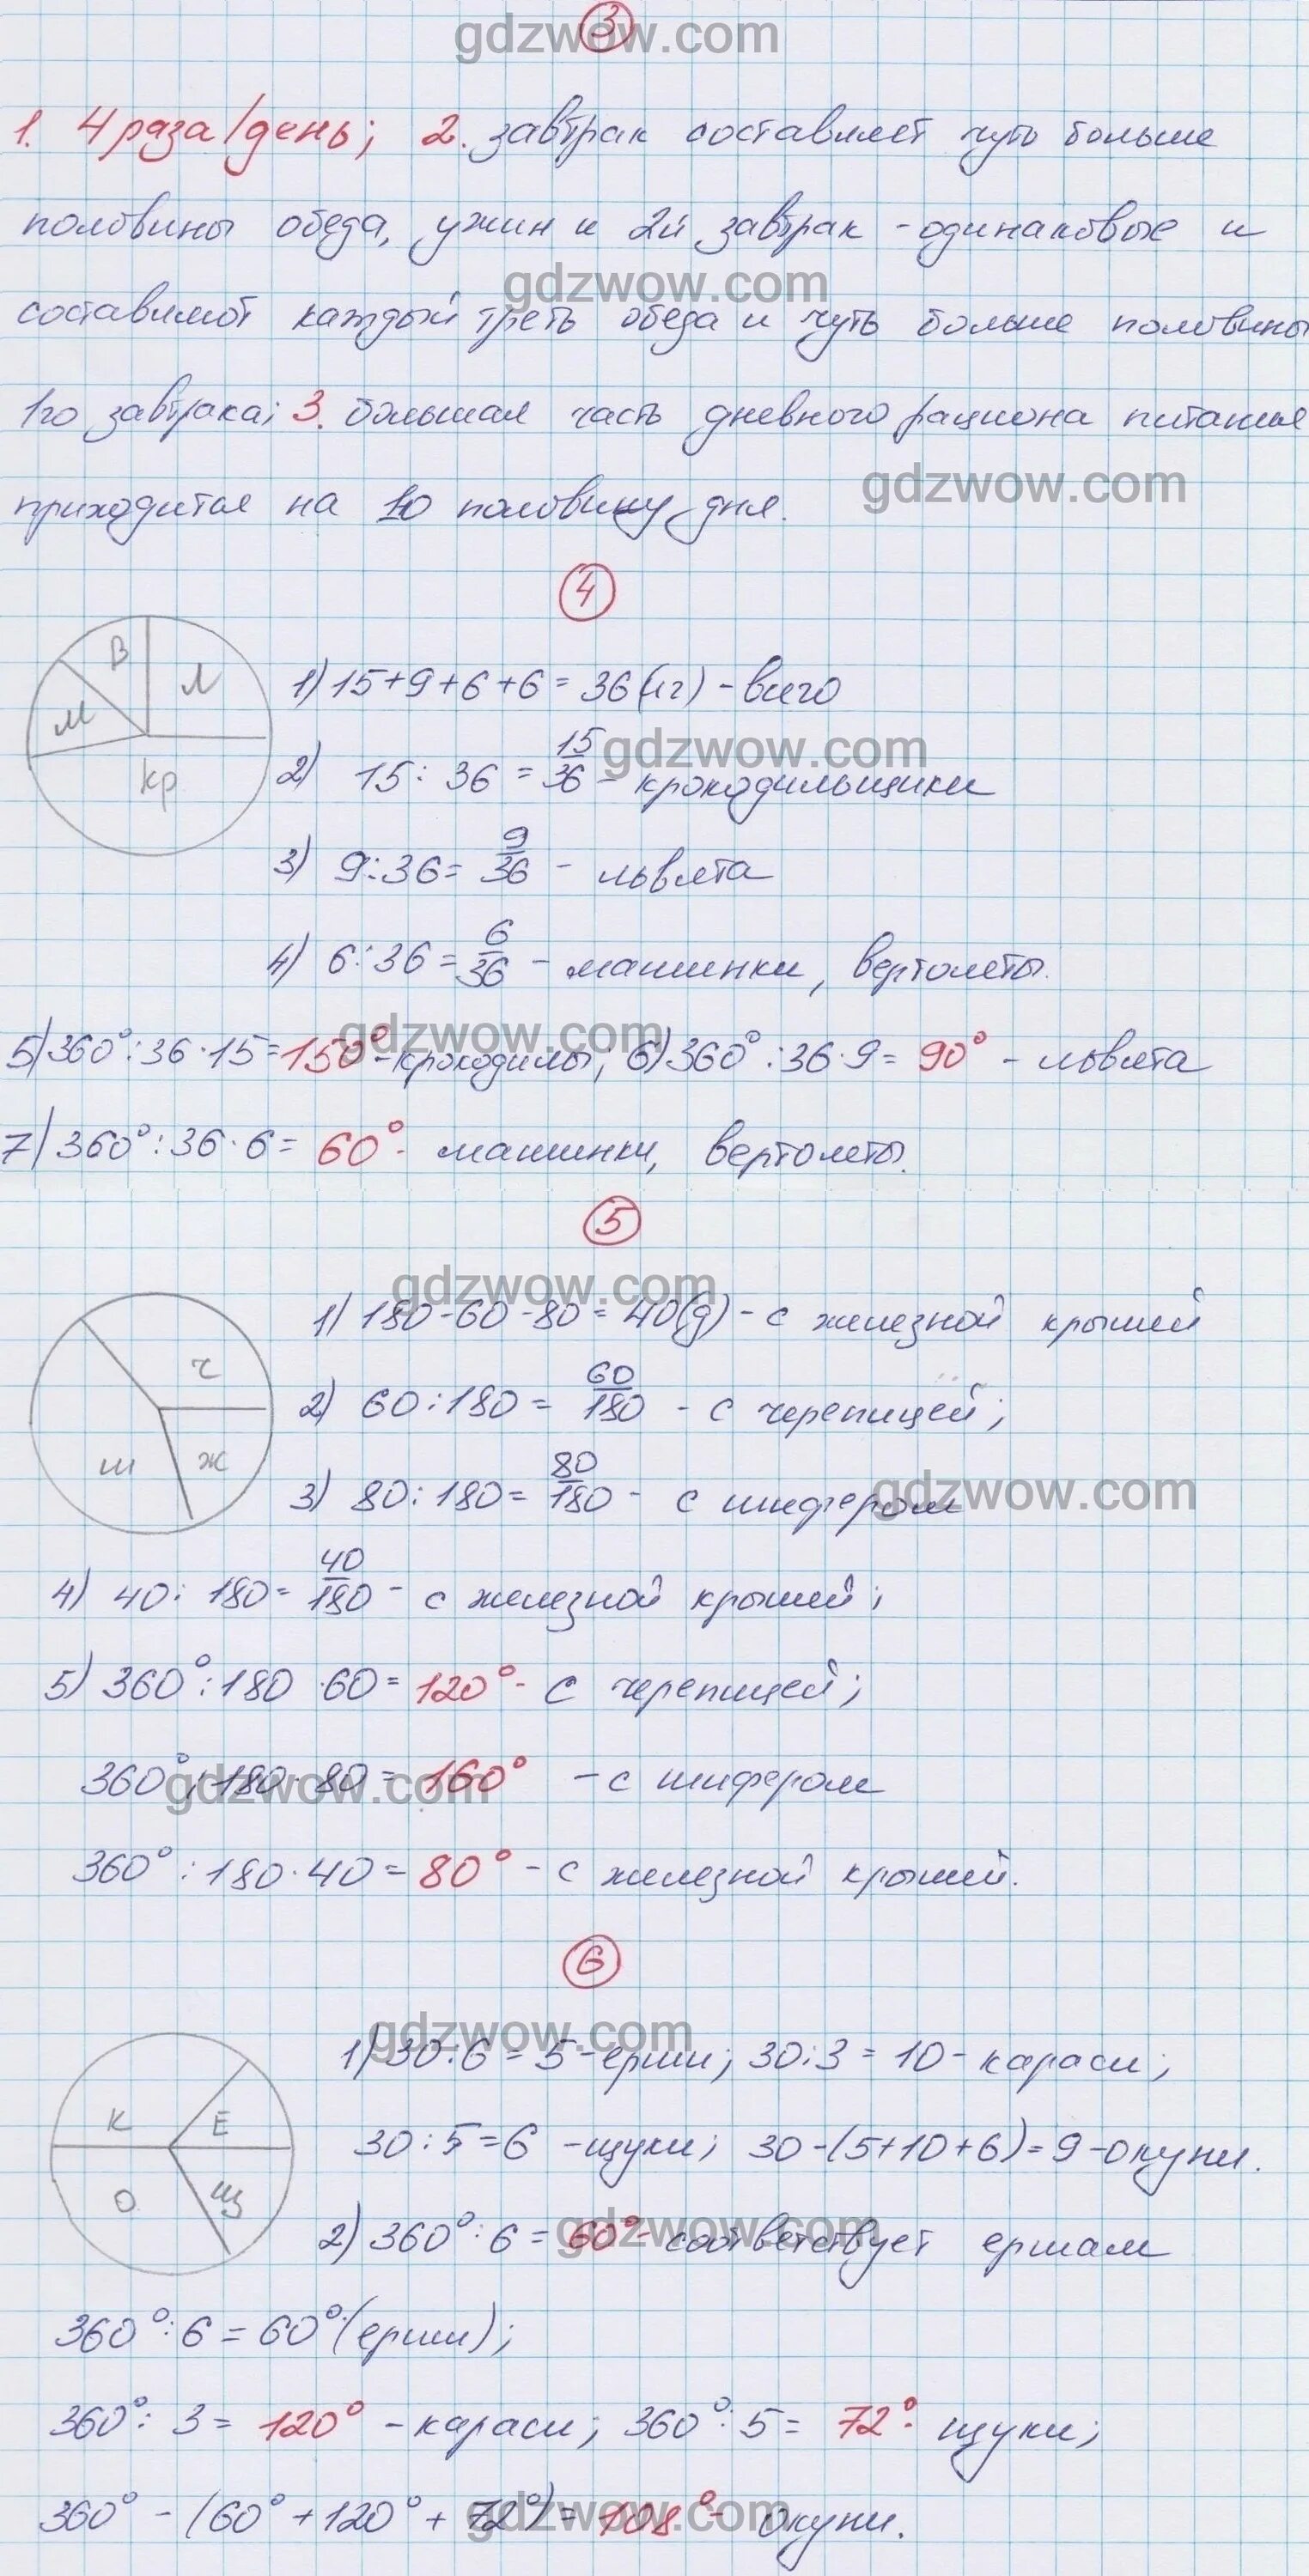 3
gdzwow.com
1. 4 раза/день; 2. завтрак составляет чуть больше
половины обеда, ужин и 2й завтрак - одинаковые и
gdzwow.com
составляют каждый треть обеда и чуть больше половины
1го завтрака; 3. большая часть дневного рациона питания
gdzwow.com
приходится на 1ю половину дня.
4
В
Л
М
кр
1) 15+9+6+6=36(кг) - всего
gdzwow.com
2) 15:36=15/36 - крокодильщики
3) 9:36=9/36 - львята
4) 6:36=6/36 - машинки, вертолеты.
gdzwow.com
5) 360°:36·15=150° - крокодилы; 6) 360°:36·9=90° - львята
7) 360°:36·6=60° - машинки, вертолеты.
5
gdzwow.com
ч
ш
ж
1) 180-60-80=40(д) - с железной крышей
2) 60:180=60/180 - с черепицей;
3) 80:180=80/180 - с шифером
gdzwow.com
4) 40:180=40/180 - с железной крышей;
5) 360°:180·60=120° - с черепицей;
360°:180·80=160° - с шифером
gdzwow.com
360°:180·40=80° - с железной крышей.
6
gdzwow.com
К
Е
О
Щ
1) 30:6=5 - ерши; 30:3=10 - караси;
30:5=6 - щуки; 30-(5+10+6)=9 - окуни.
2) 360°:6=60° - соответствует ершам
gdzwow.com
360°:6=60° (ерши);
360°:3=120° - караси; 360°:5=72° - щуки;
360°-(60°+120°+72°)=108° - окуни.
gdzwow.com